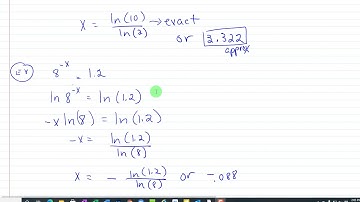 x = ln(10)/ln(2) → exact
or 3.322
approx
Ex 8^-x = 1.2
ln 8^-x = ln(1.2)
-x ln(8) = ln(1.2)
-x = ln(1.2)/ln(8)
x = - ln(1.2)/ln(8) or -.088